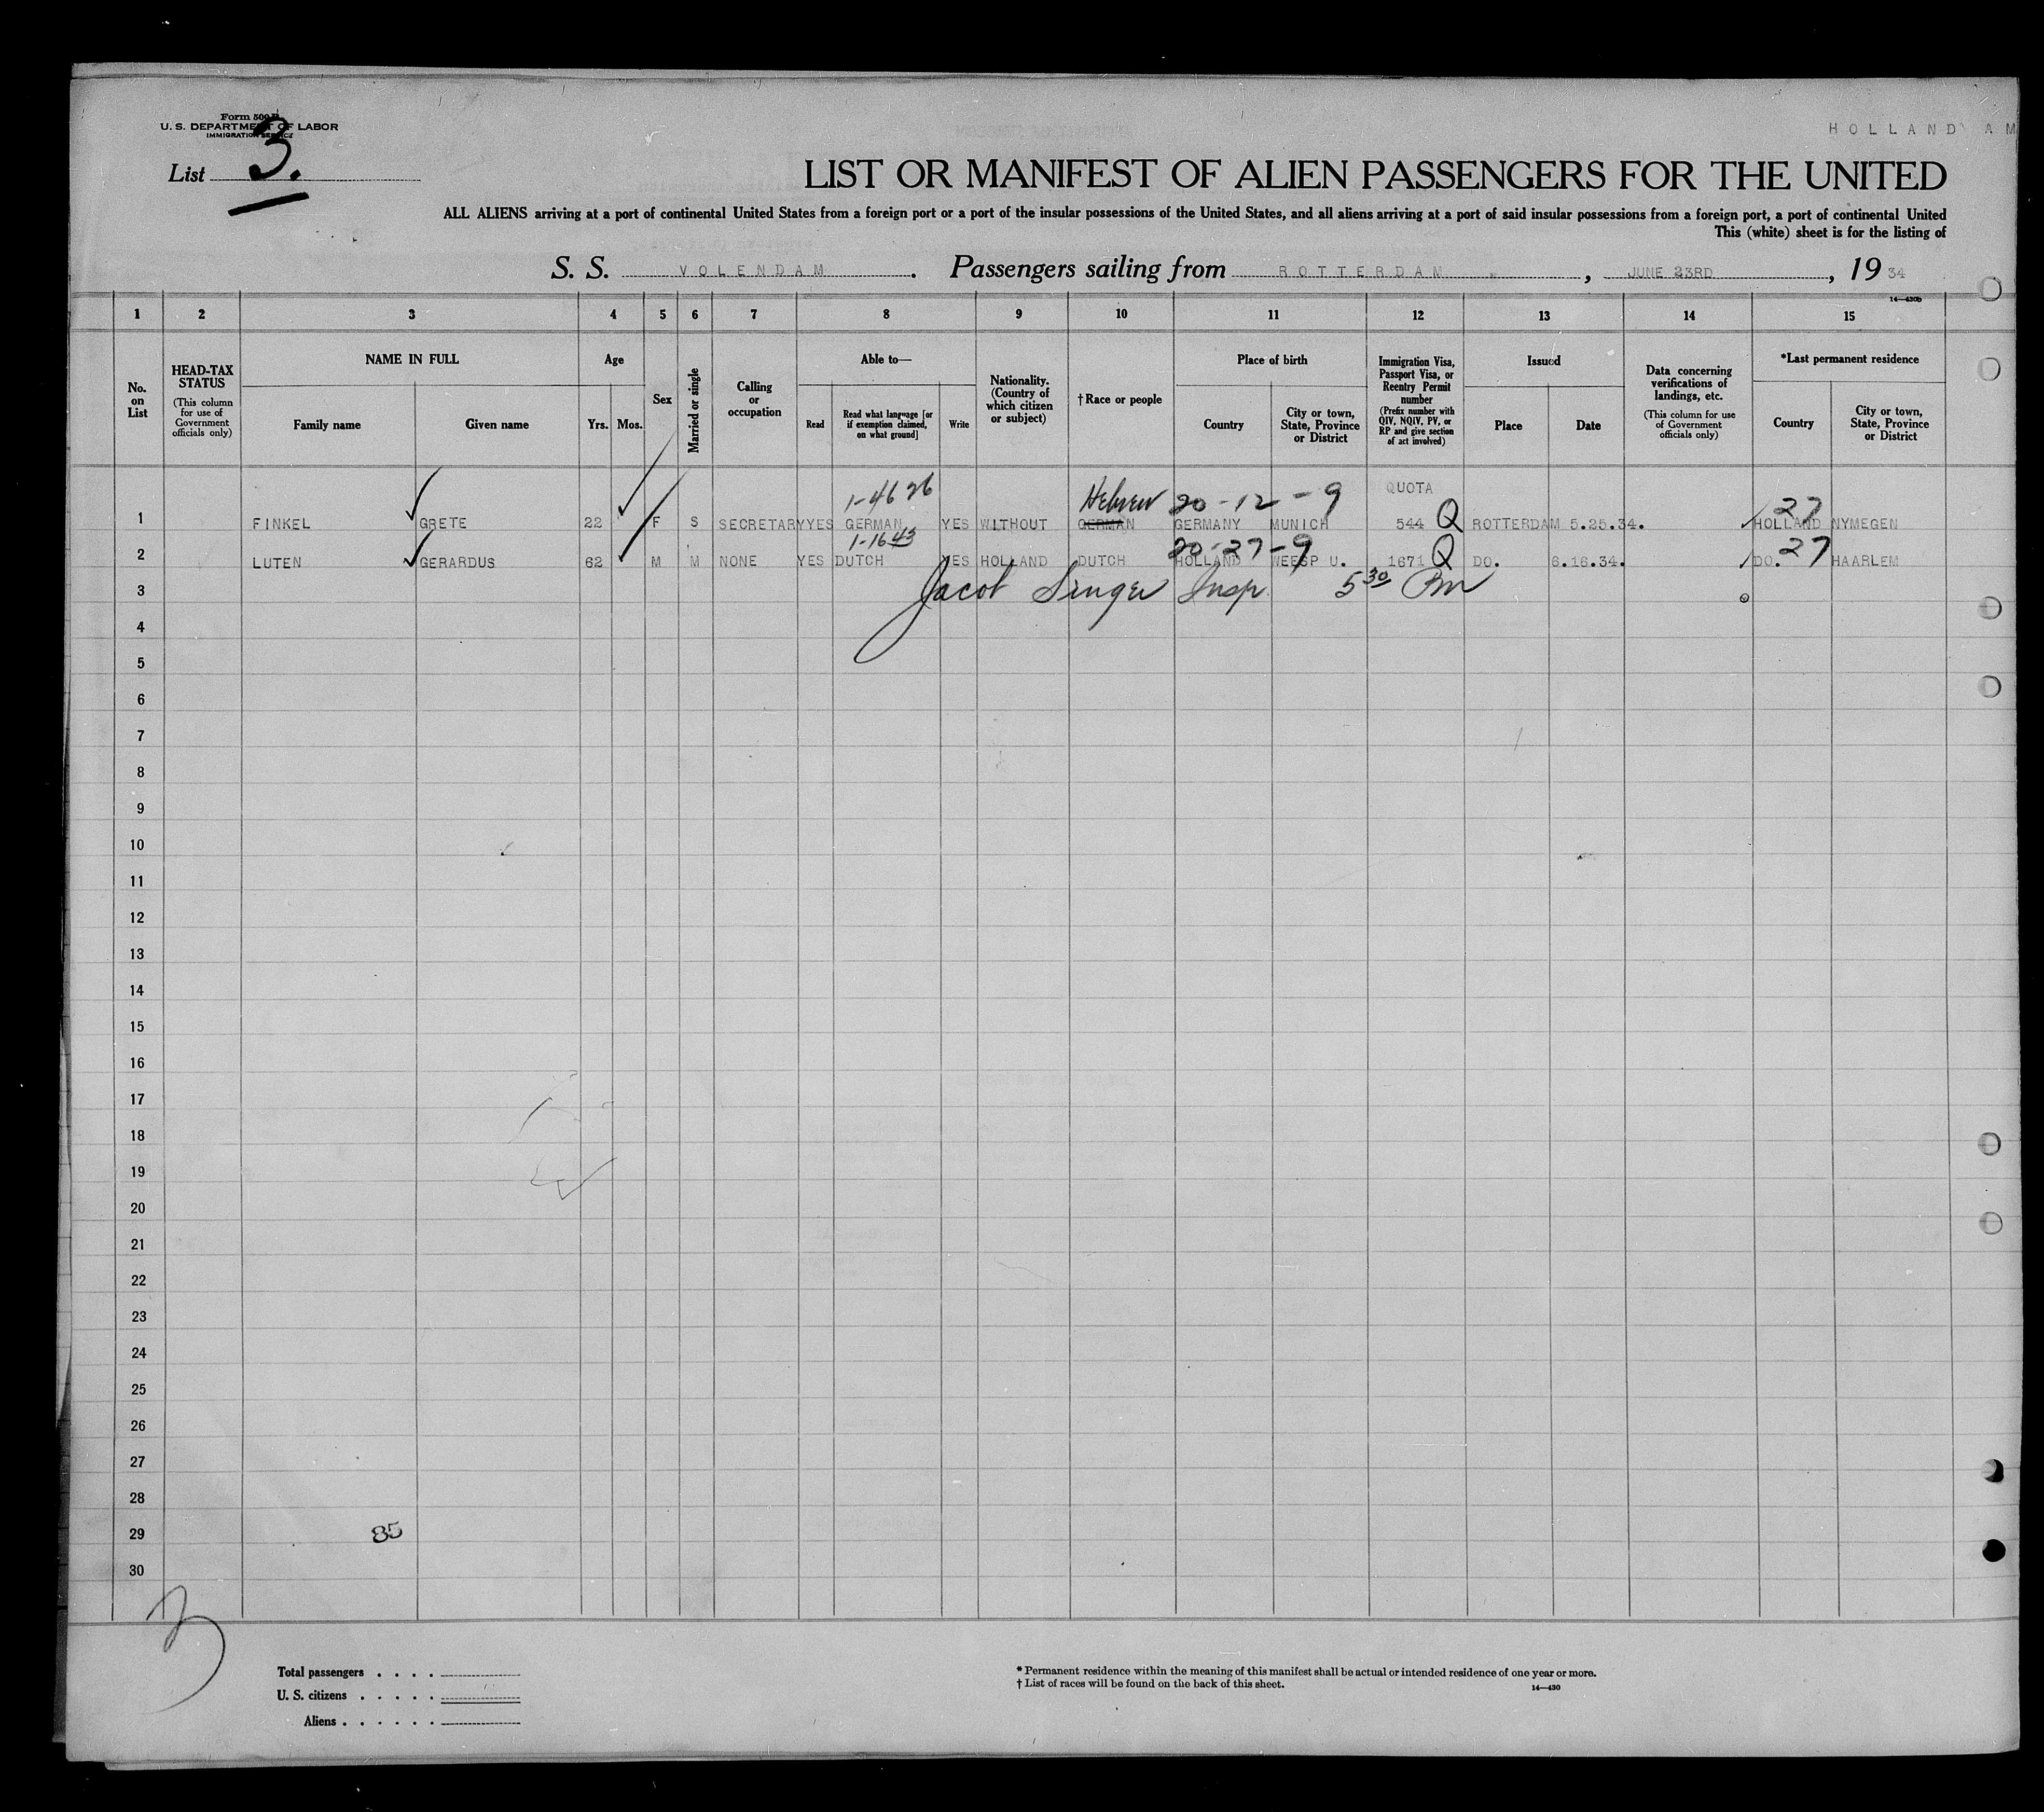 Form 500 B
U. S. DEPARTMENT OF LABOR
IMMIGRATION SERVICE
List 3.
HOLLAND AM
LIST OR MANIFEST OF ALIEN PASSENGERS FOR THE UNITED
ALL ALIENS arriving at a port of continental United States from a foreign port or a port of the insular possessions of the United States, and all aliens arriving at a port of said insular possessions from a foreign port, a port of continental United
This (white) sheet is for the listing of
S. S. VOLENDAM. Passengers sailing from ROTTERDAM, JUNE 23RD, 19 34
14—430b
1 2 3 4 5 6 7 8 9 10 11 12 13 14 15
No. on List
HEAD-TAX STATUS (This column for use of Government officials only)
NAME IN FULL
Family name Given name
Age
Yrs. Mos.
Sex
Married or single
Calling or occupation
Able to—
Read
Read what language [or if exemption claimed, on what ground]
Write
Nationality. (Country of which citizen or subject)
†Race or people
Place of birth
Country
City or town, State, Province or District
Immigration Visa, Passport Visa, or Reentry Permit number (Prefix number with QIV, NQIV, PV, or RP and give section of act involved)
Issued
Place Date
Data concerning verifications of landings, etc. (This column for use of Government officials only)
*Last permanent residence
Country
City or town, State, Province or District
1-46 26 Hebrew 20-12-9 QUOTA 27
1 FINKEL GRETE 22 F S SECRETARY YES GERMAN YES WITHOUT GERMAN GERMANY MUNICH 544 Q ROTTERDAM 5.25.34. HOLLAND NYMEGEN
1-16 43 20-27-9 27
2 LUTEN GERARDUS 62 M M NONE YES DUTCH YES HOLLAND DUTCH HOLLAND WEESP U. 1671 Q DO. 6.16.34. DO. HAARLEM
3 Jacob Singer Insp. 5 30 Pm
4
5
6
7
8
9
10
11
12
13
14
15
16
17
18
19
20
21
22
23
24
25
26
27
28
29 85
30
3
Total passengers . . . .
U. S. citizens . . . . .
Aliens . . . . . .
* Permanent residence within the meaning of this manifest shall be actual or intended residence of one year or more.
† List of races will be found on the back of this sheet.
14—430